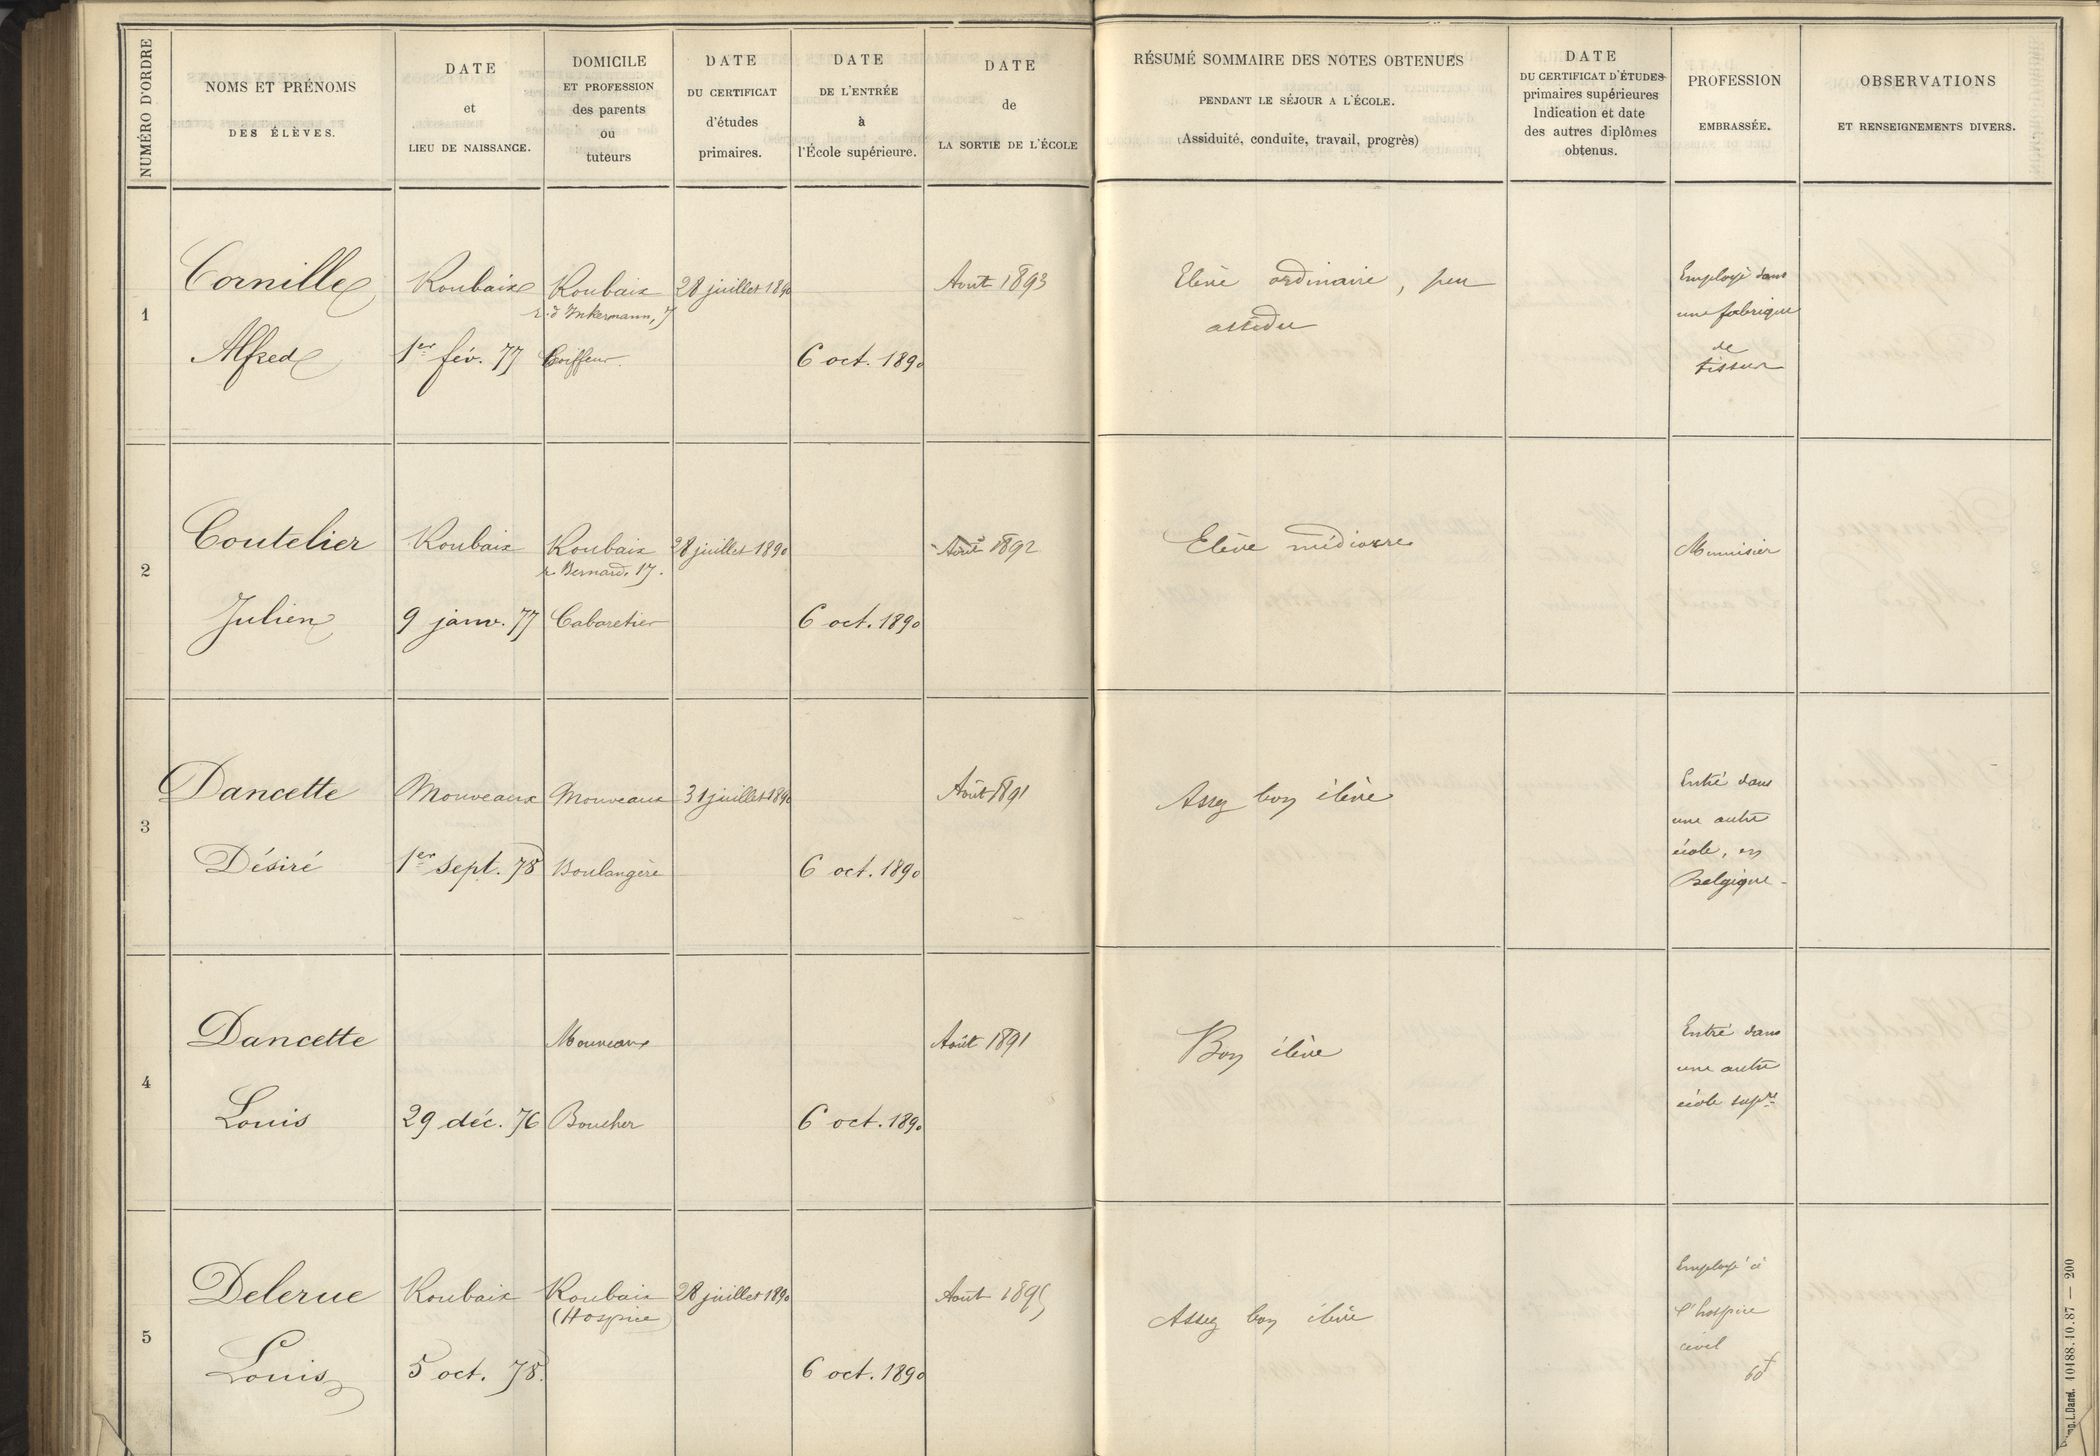 NUMÉRO D'ORDRE
NOMS ET PRÉNOMS
DES ÉLÈVES.
DATE
et
LIEU DE NAISSANCE.
DOMICILE
ET PROFESSION
des parents
ou
tuteurs
DATE
DU CERTIFICAT
d'études
primaires.
DATE
DE L'ENTRÉE
à
l'École supérieure.
DATE
de
LA SORTIE DE L'ÉCOLE
RÉSUMÉ SOMMAIRE DES NOTES OBTENUES
PENDANT LE SÉJOUR A L'ÉCOLE.
(Assiduité, conduite, travail, progrès)
DATE
DU CERTIFICAT D'ÉTUDES
primaires supérieures
Indication et date
des autres diplômes
obtenus.
PROFESSION
EMBRASSÉE.
OBSERVATIONS
ET RENSEIGNEMENTS DIVERS.
1
Cornille
Alfred
Roubaix
1er fév. 77
Roubaix
r. d'Inkermann, 7
Coiffeur
28 juillet 1890
6 oct. 1890
Août 1893
Elève ordinaire, peu
assidu
Employé dans
une fabrique
de
tissus
2
Coutelier
Julien
Roubaix
9 janv. 77
Roubaix
r. Bernard, 17.
Cabaretier
28 juillet 1890
6 oct. 1890
Août 1892
Elève médiocre
Menuisier
3
Dancette
Désiré
Mouveaux
1er sept. 78
Mouveaux
Boulangère
31 juillet 1890
6 oct. 1890
Août 1891
Assez bon élève
Entré dans
une autre
école, en
Belgique
4
Dancette
Louis
29 déc. 76
Mouveaux
Boucher
6 oct. 1890
Août 1891
Bon élève
Entré dans
une autre
école supre
5
Delerue
Louis
Roubaix
5 oct. 78.
Roubaix
(Hospice)
28 juillet 1890
6 oct. 1890
Août 1895
Assez bon élève
Employé à
l'hospice
civil
60f
L.Danel. 10188.10.87 — 200